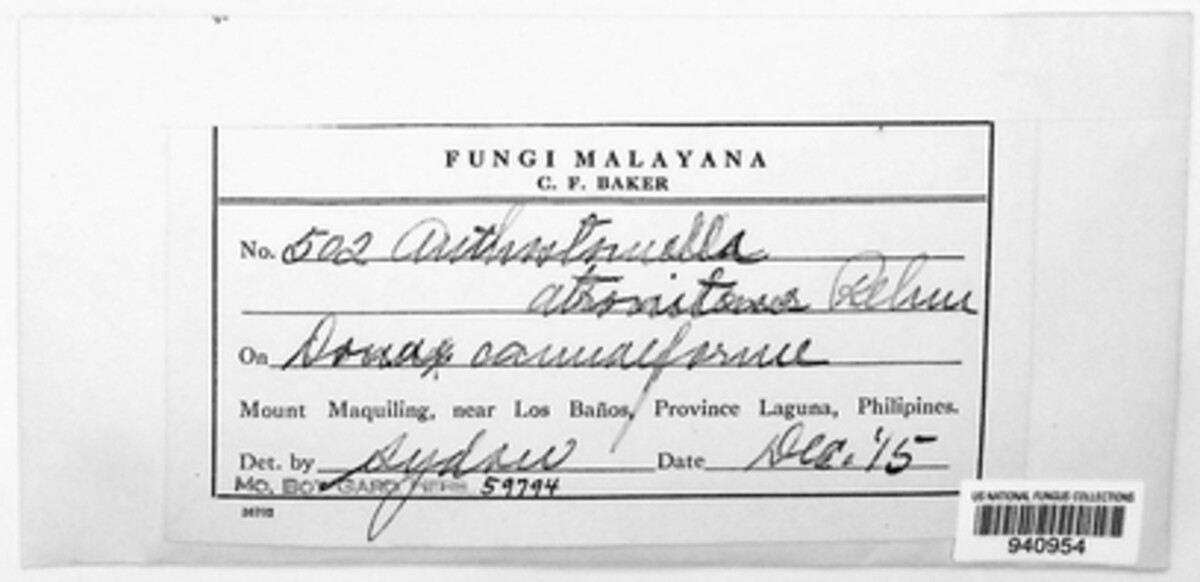 FUNGI MALAYANA
C. F. BAKER
No. 502 Anthostomella
atronitens Rehm
On Donax cannaeforme
Mount Maquiling, near Los Baños, Province Laguna, Philipines.
Det. by Sydow Date Dec. '15
MO. BOT. GARD. HERB. 59794
US NATIONAL FUNGUS COLLECTIONS
940954